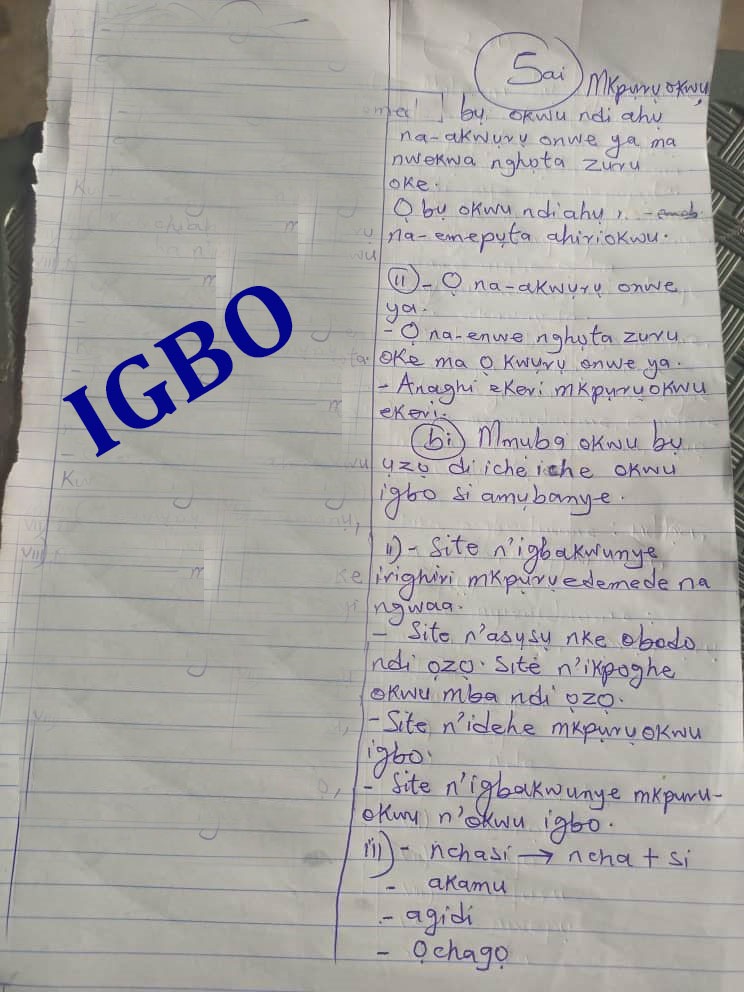 IGBO
5ai Mkpụrụokwụ
bụ okwu ndi ahụ
na-akwụrụ onwe ya ma
nwekwa nghọta zuru
oke.
Ọ bụ okwu ndiahụ,
na-emepụta ahiriokwu.
(ii) - Ọ na-akwụrụ onwe
ya.
- Ọ na-enwe nghọta zuru
oke ma ọ kwụrụ onwe ya.
- Anaghi ekeri mkpụrụokwu
ekeri.
(bi) Mmuba okwu bụ
ụzọ di iche iche okwu
igbo si amụbanye.
ii) - Site n'igbakwunye
irighiri mkpụrụedemede na
ngwaa.
- Site n'asụsụ nke obodo
ndi ọzọ. Site n'ikpoghe
okwu mba ndi ọzọ.
- Site n'idehe mkpụrụokwu
igbo.
- Site n'igbakwunye mkpuru-
okwu n'okwu igbo.
iii) - nchasi → ncha + si
- akamu
- agidi
- Ọchagọ